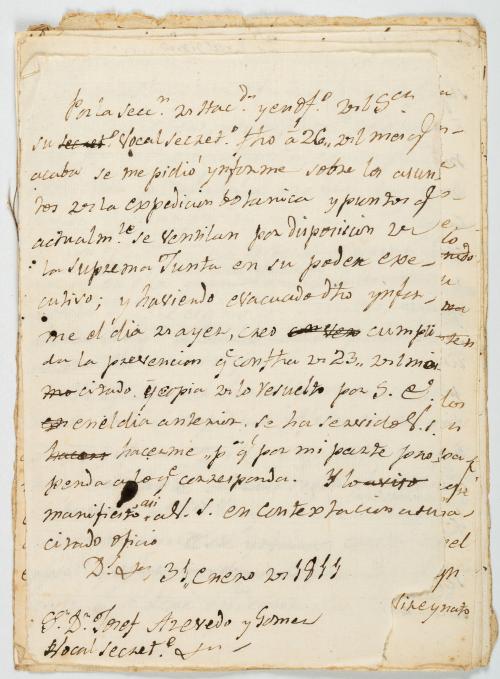 Por la secc.n de Hac.da y en of.o de 15 en
su secret.o Vocal secret.o dho á 26,, del mes q
acaba se me pidió ynforme sobre los asun
tos de la expedicion botanica y puntos q
actualm.te se ventilan por disposicion de
la suprema Junta en su poder exe-
cutivo; y haviendo evacuado dho ynfor-
me el dia de ayer, creo con vero cumpli
da la prevencion q con fha de 23,, del mis
mo citado y copia de lo resuelto por S. E.
en en el dia anterior. se ha servido V. S.
hacers hacerme,, p.a q.e por mi parte pro
penda a lo q.e corresponda. Y lo aviso
manifiesto asi a V. S. en contextacion a su
citado oficio
D.s &.a 31 enero de 1811
S.r D.n Josef Azevedo y Gomez
Vocal Secret.o &.a
Vireynato